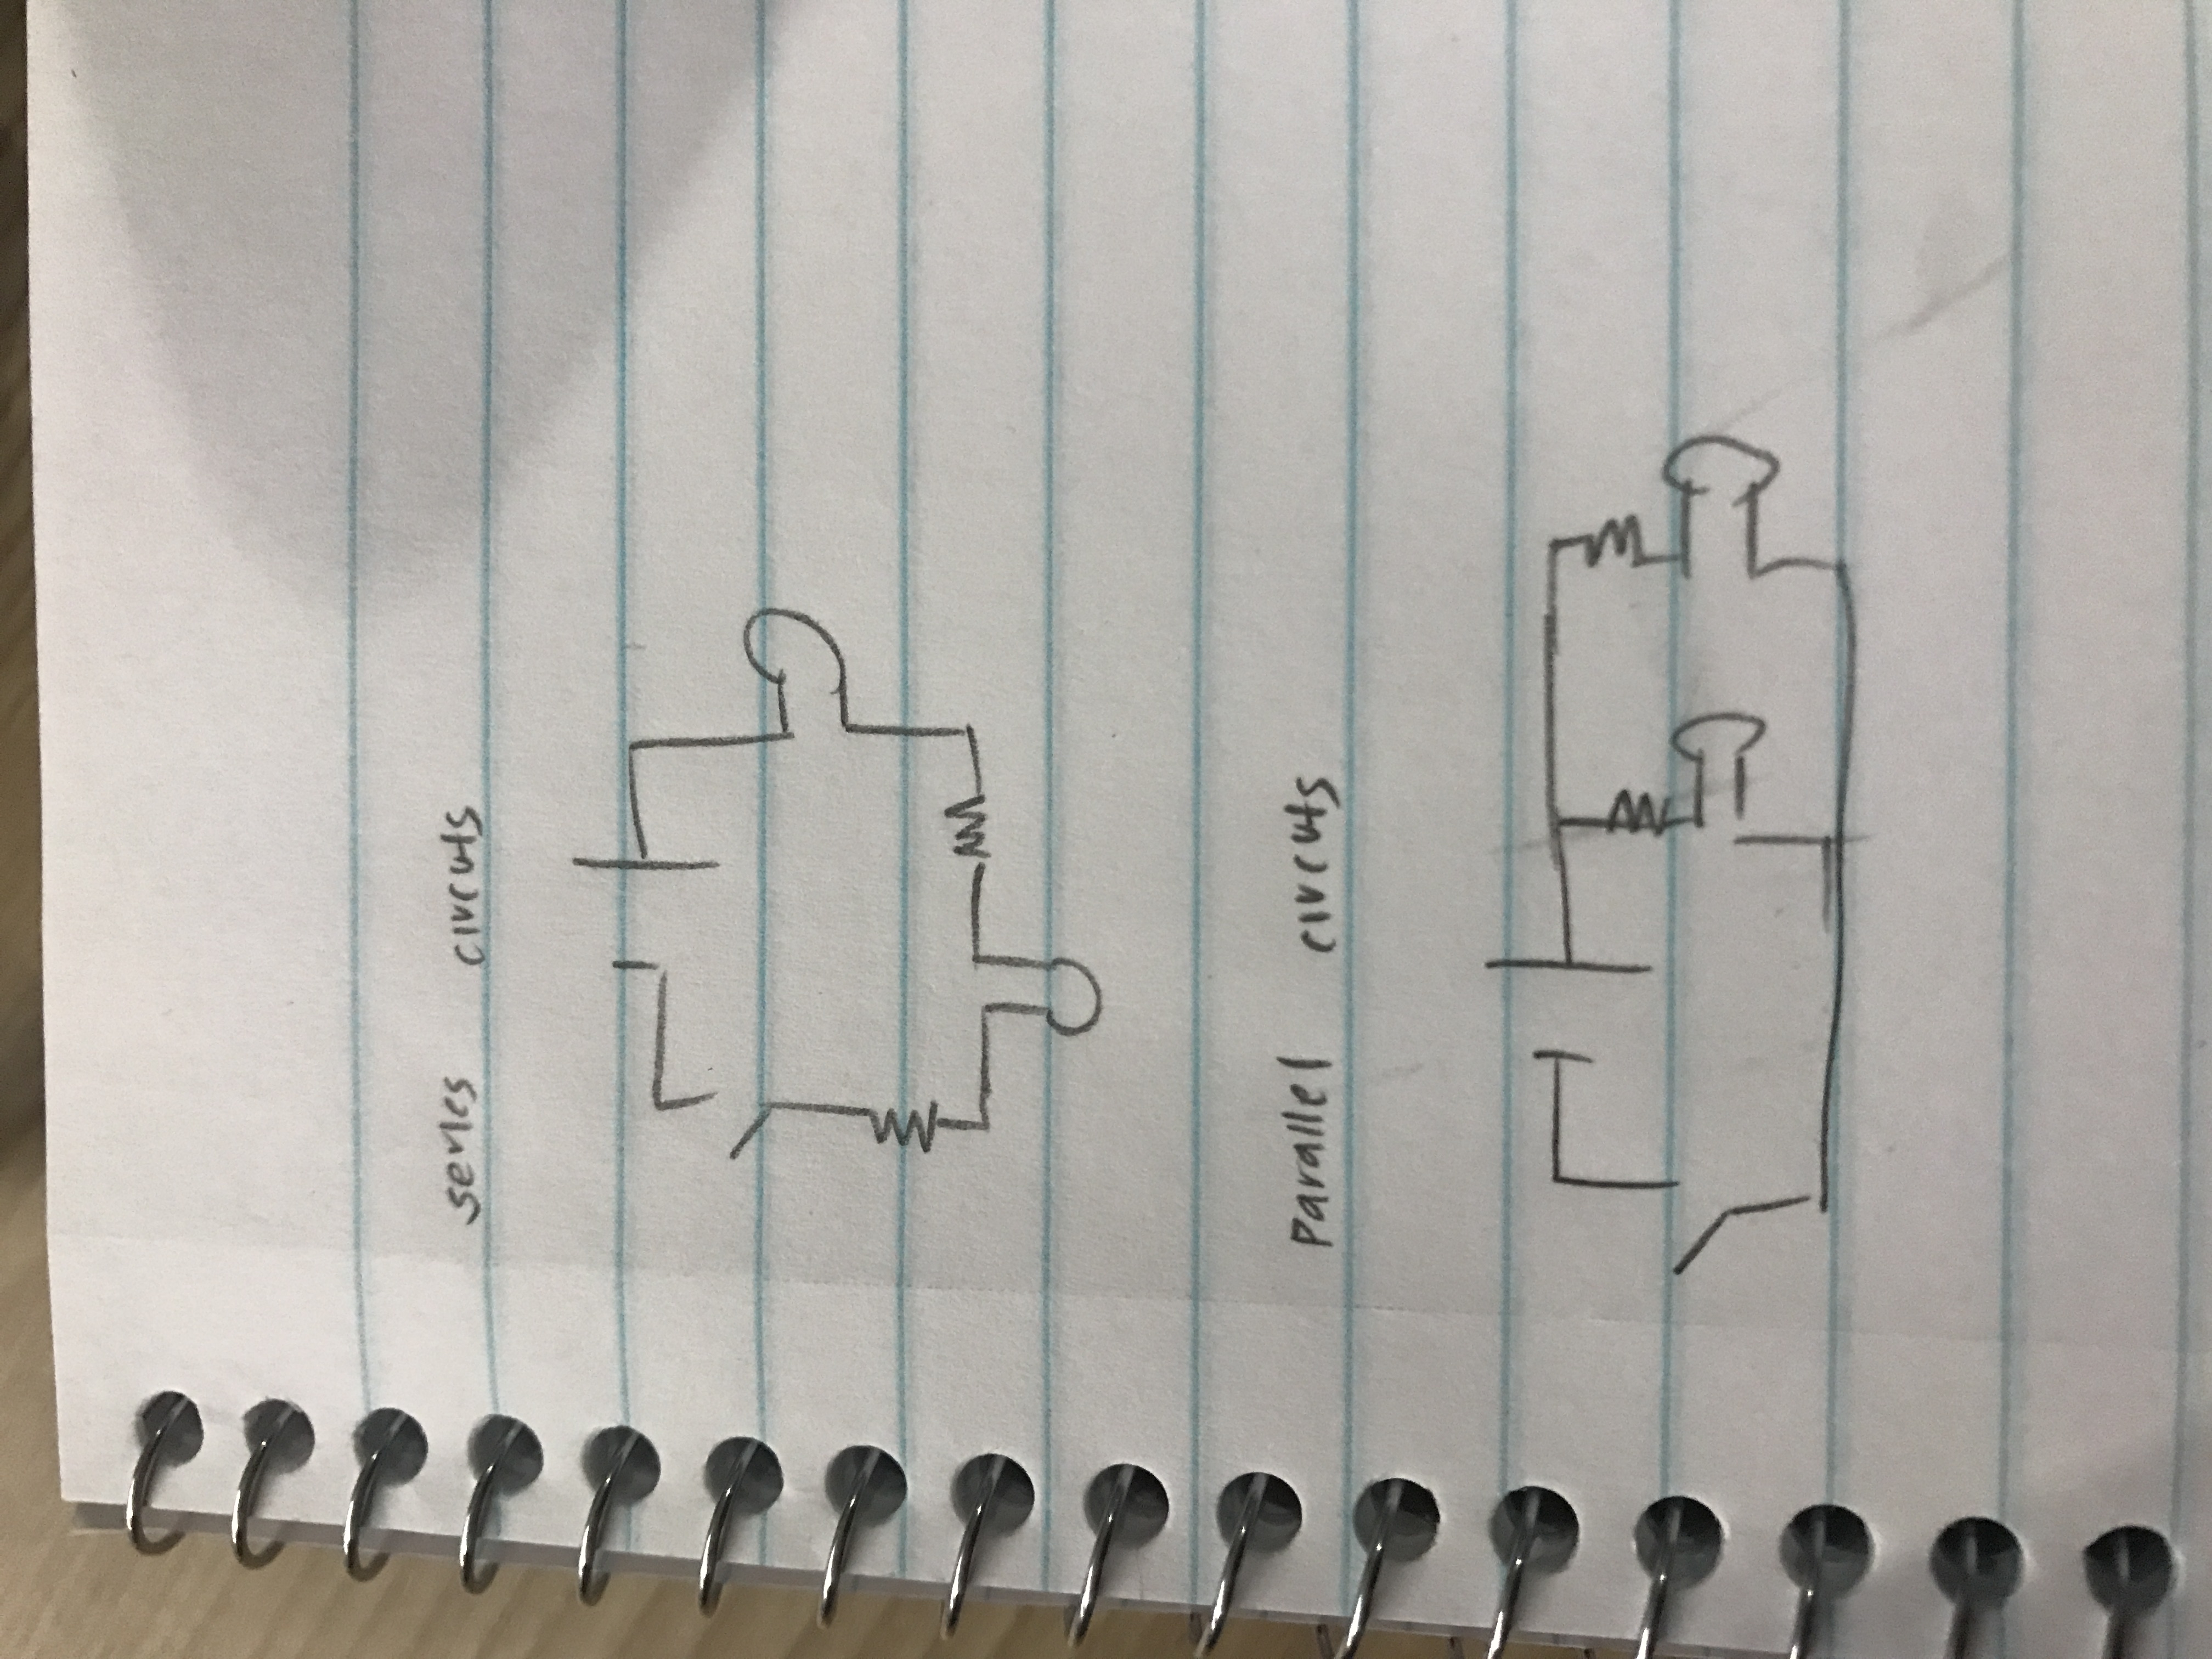 series circuts
Parallel circuts